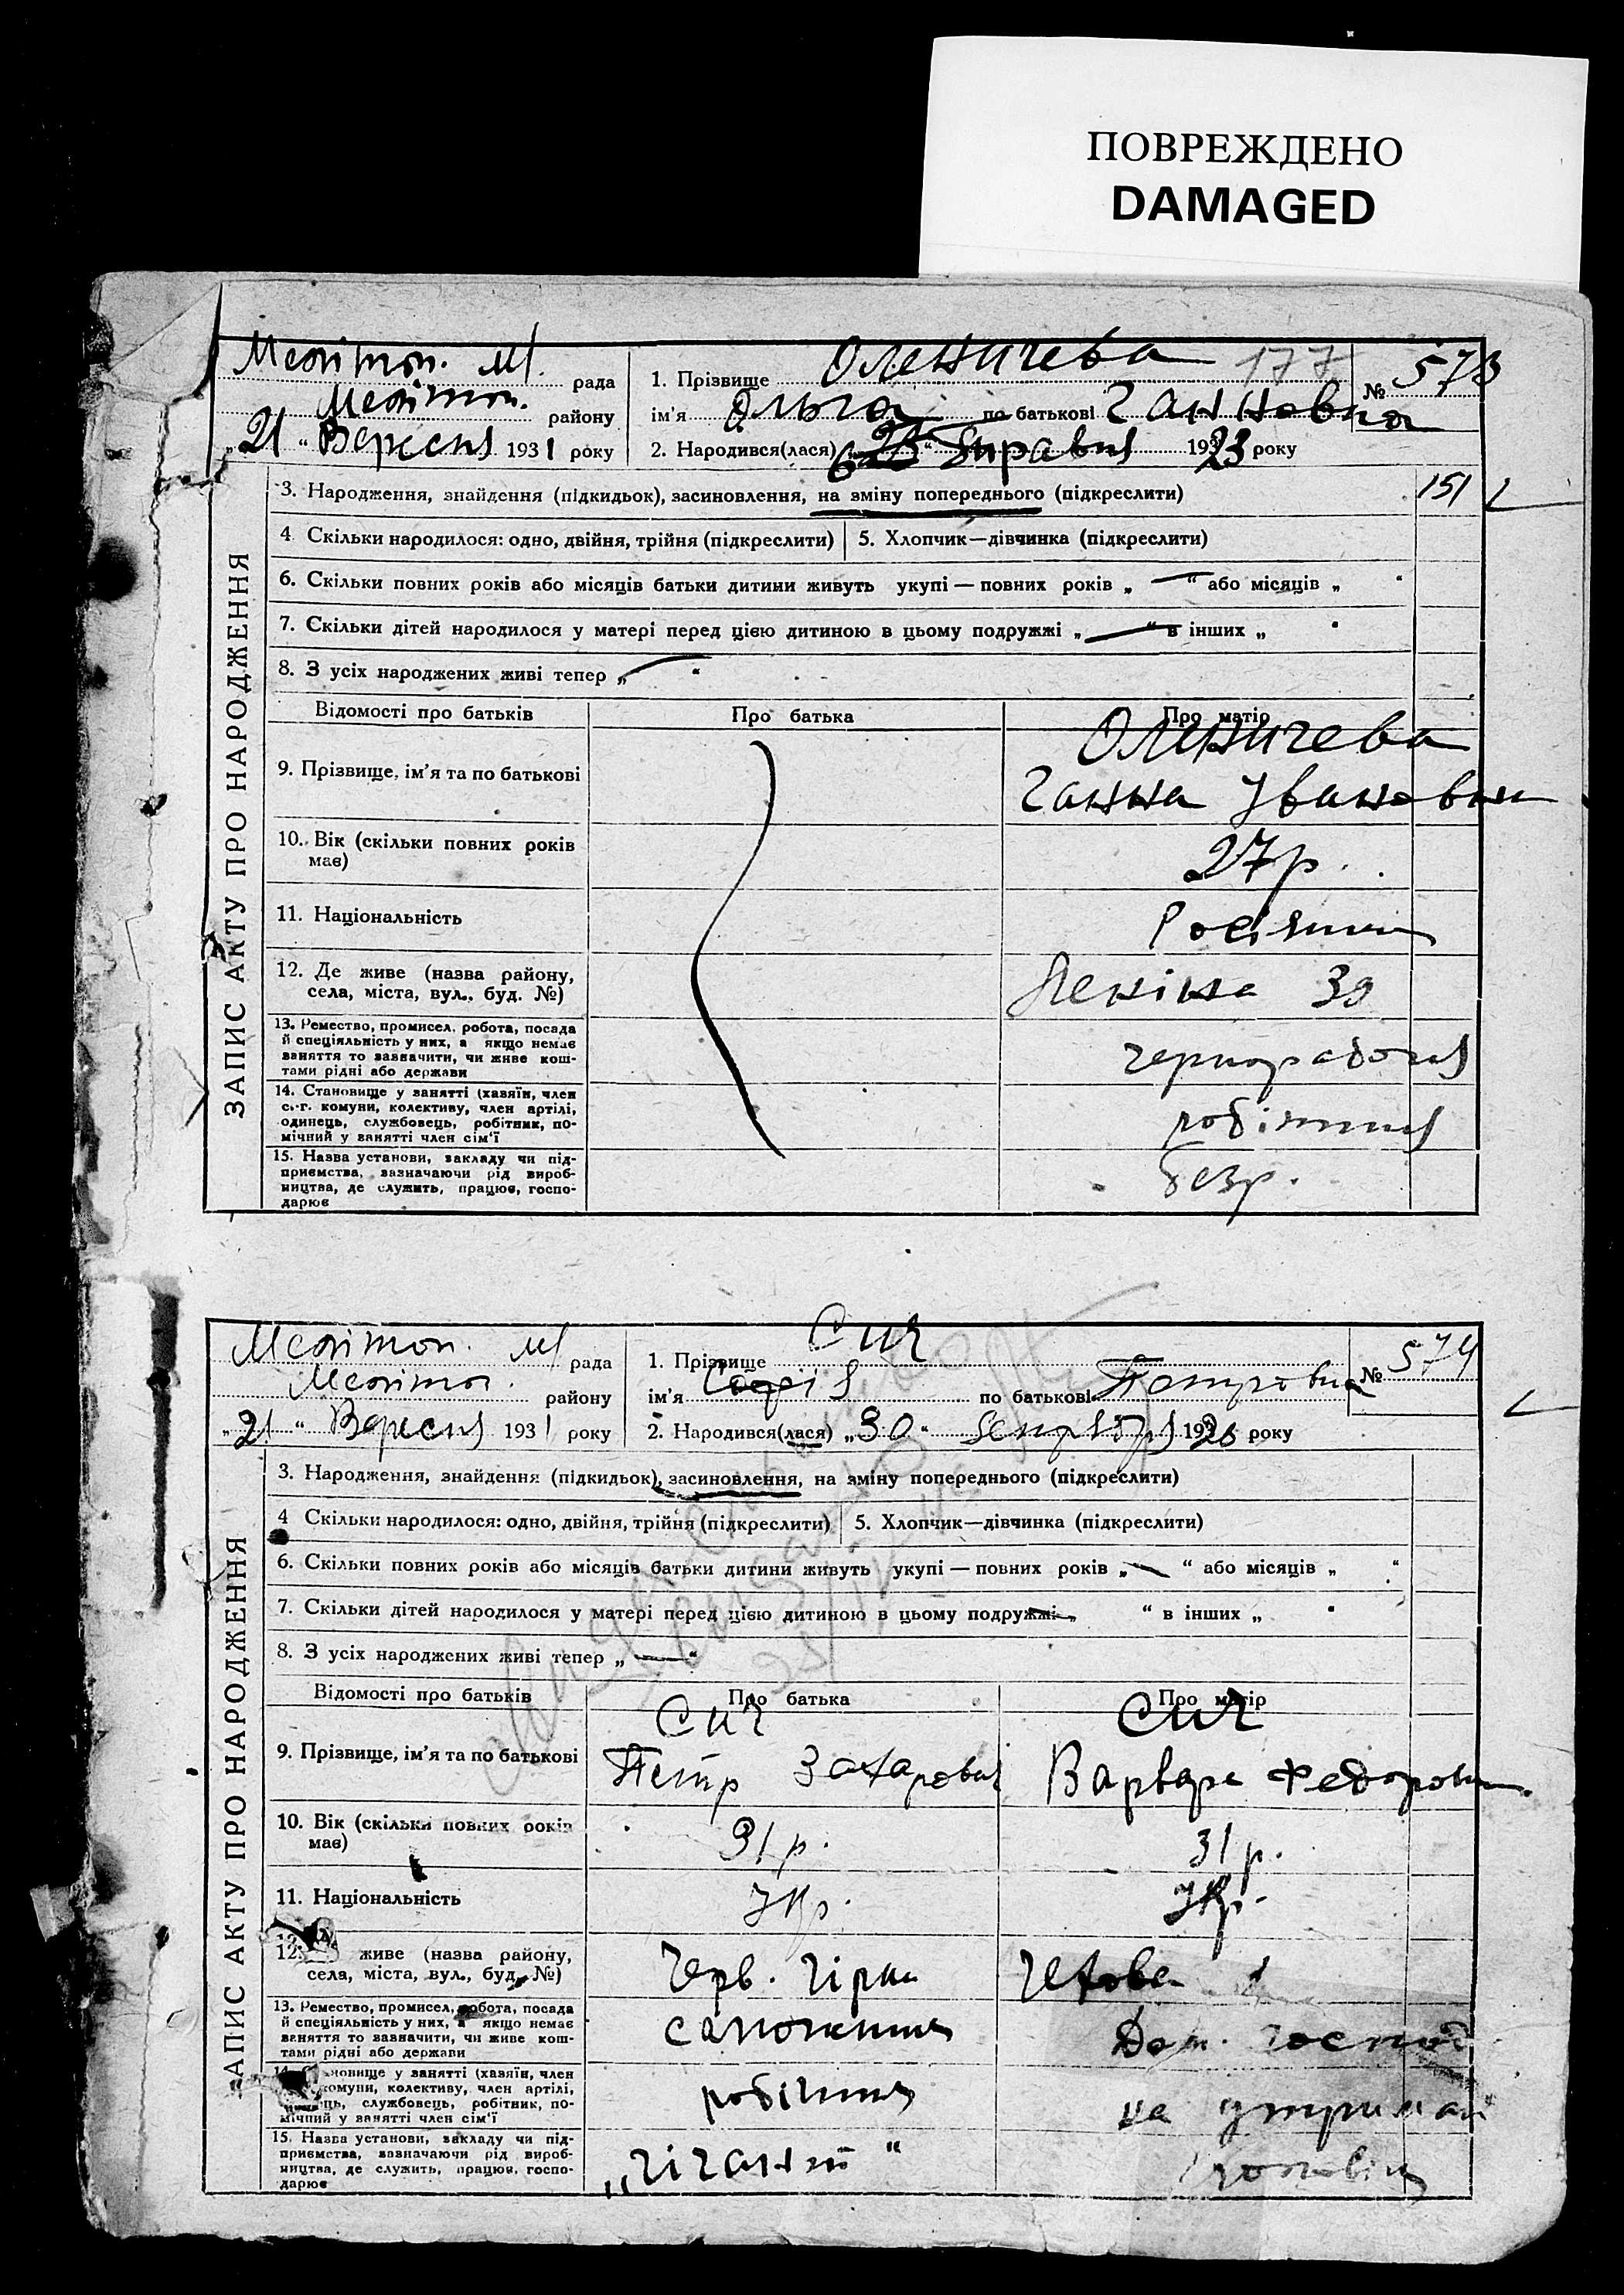 ПОВРЕЖДЕНО
DAMAGED
Мелітоп. м. рада
Мелітоп. району
„21“ Вересня 1931 року
1. Прізвище Оленичева 177
ім'я Ольга по батькові Ганновна
2. Народився(лася) 1923 року
№ 573
ЗАПИС АКТУ ПРО НАРОДЖЕННЯ
3. Народження, знайдення (підкидьок), засиновлення, на зміну попереднього (підкреслити) 151
4. Скільки народилося: одно, двійня, трійня (підкреслити) 5. Хлопчик—дівчинка (підкреслити)
6. Скільки повних років або місяців батьки дитини живуть укупі — повних років „ — “ або місяців „ “
7. Скільки дітей народилося у матері перед цією дитиною в цьому подружжі „ — “ в інших „ “
8. З усіх народжених живі тепер „ — “
Відомості про батьків Про батька Про матір
9. Прізвище, ім'я та по батькові Оленичева
Ганна Івановна
10. Вік (скільки повних років
має) 27 р.
11. Національність Росіянка
12. Де живе (назва району,
села, міста, вул., буд. №) Леніна 30
13. Ремество, промисел, робота, посада
й спеціяльність у них, а якщо немає
заняття то зазначити, чи живе кош-
тами рідні або держави
чернорабочая
14. Становище у занятті (хазяїн, член
с.-г. комуни, колективу, член артілі,
одинець, службовець, робітник, по-
мічний у занятті член сім'ї
робітниця
15. Назва установи, закладу чи під-
приємства, зазначаючи рід вироб-
ництва, де служить, працює, госпо-
дарює
безр.
Мелітоп. м. рада
Мелітоп. району
„21“ Вересня 1931 року
1. Прізвище Сич
ім'я Софія по батькові Петровна
2. Народився(лася) „30“ Сентября 1926 року
№ 574
ЗАПИС АКТУ ПРО НАРОДЖЕННЯ
3. Народження, знайдення (підкидьок), засиновлення, на зміну попереднього (підкреслити)
4 Скільки народилося: одно, двійня, трійня (підкреслити) 5. Хлопчик—дівчинка (підкреслити)
6. Скільки повних років або місяців батьки дитини живуть укупі — повних років „ — “ або місяців „ “
7. Скільки дітей народилося у матері перед цією дитиною в цьому подружжі „ “ в інших „ “
8. З усіх народжених живі тепер „ — “
Відомості про батьків Про батька Про матір
9. Прізвище, ім'я та по батькові Сич Сич
Петр Захарович Варвара Федоровна
10. Вік (скільки повних років
має) 31 р. 31 р.
11. Національність Укр. Укр.
12. живе (назва району,
села, міста, вул., буд. №) Черв. гірка Чехова 1
13. Ремество, промисел, робота, посада
й спеціяльність у них, а якщо немає
заняття то зазначити, чи живе кош-
тами рідні або держави
сапожник Дом. господ
14. Становище у занятті (хазяїн, член
комуни, колективу, член артілі,
одинець, службовець, робітник, по-
мічний у занятті член сім'ї
робітник на утриман
15. Назва установи, закладу чи під-
приємства, зазначаючи рід вироб-
ництва, де служить, працює, госпо-
дарює
„Гігант“ чоловіка